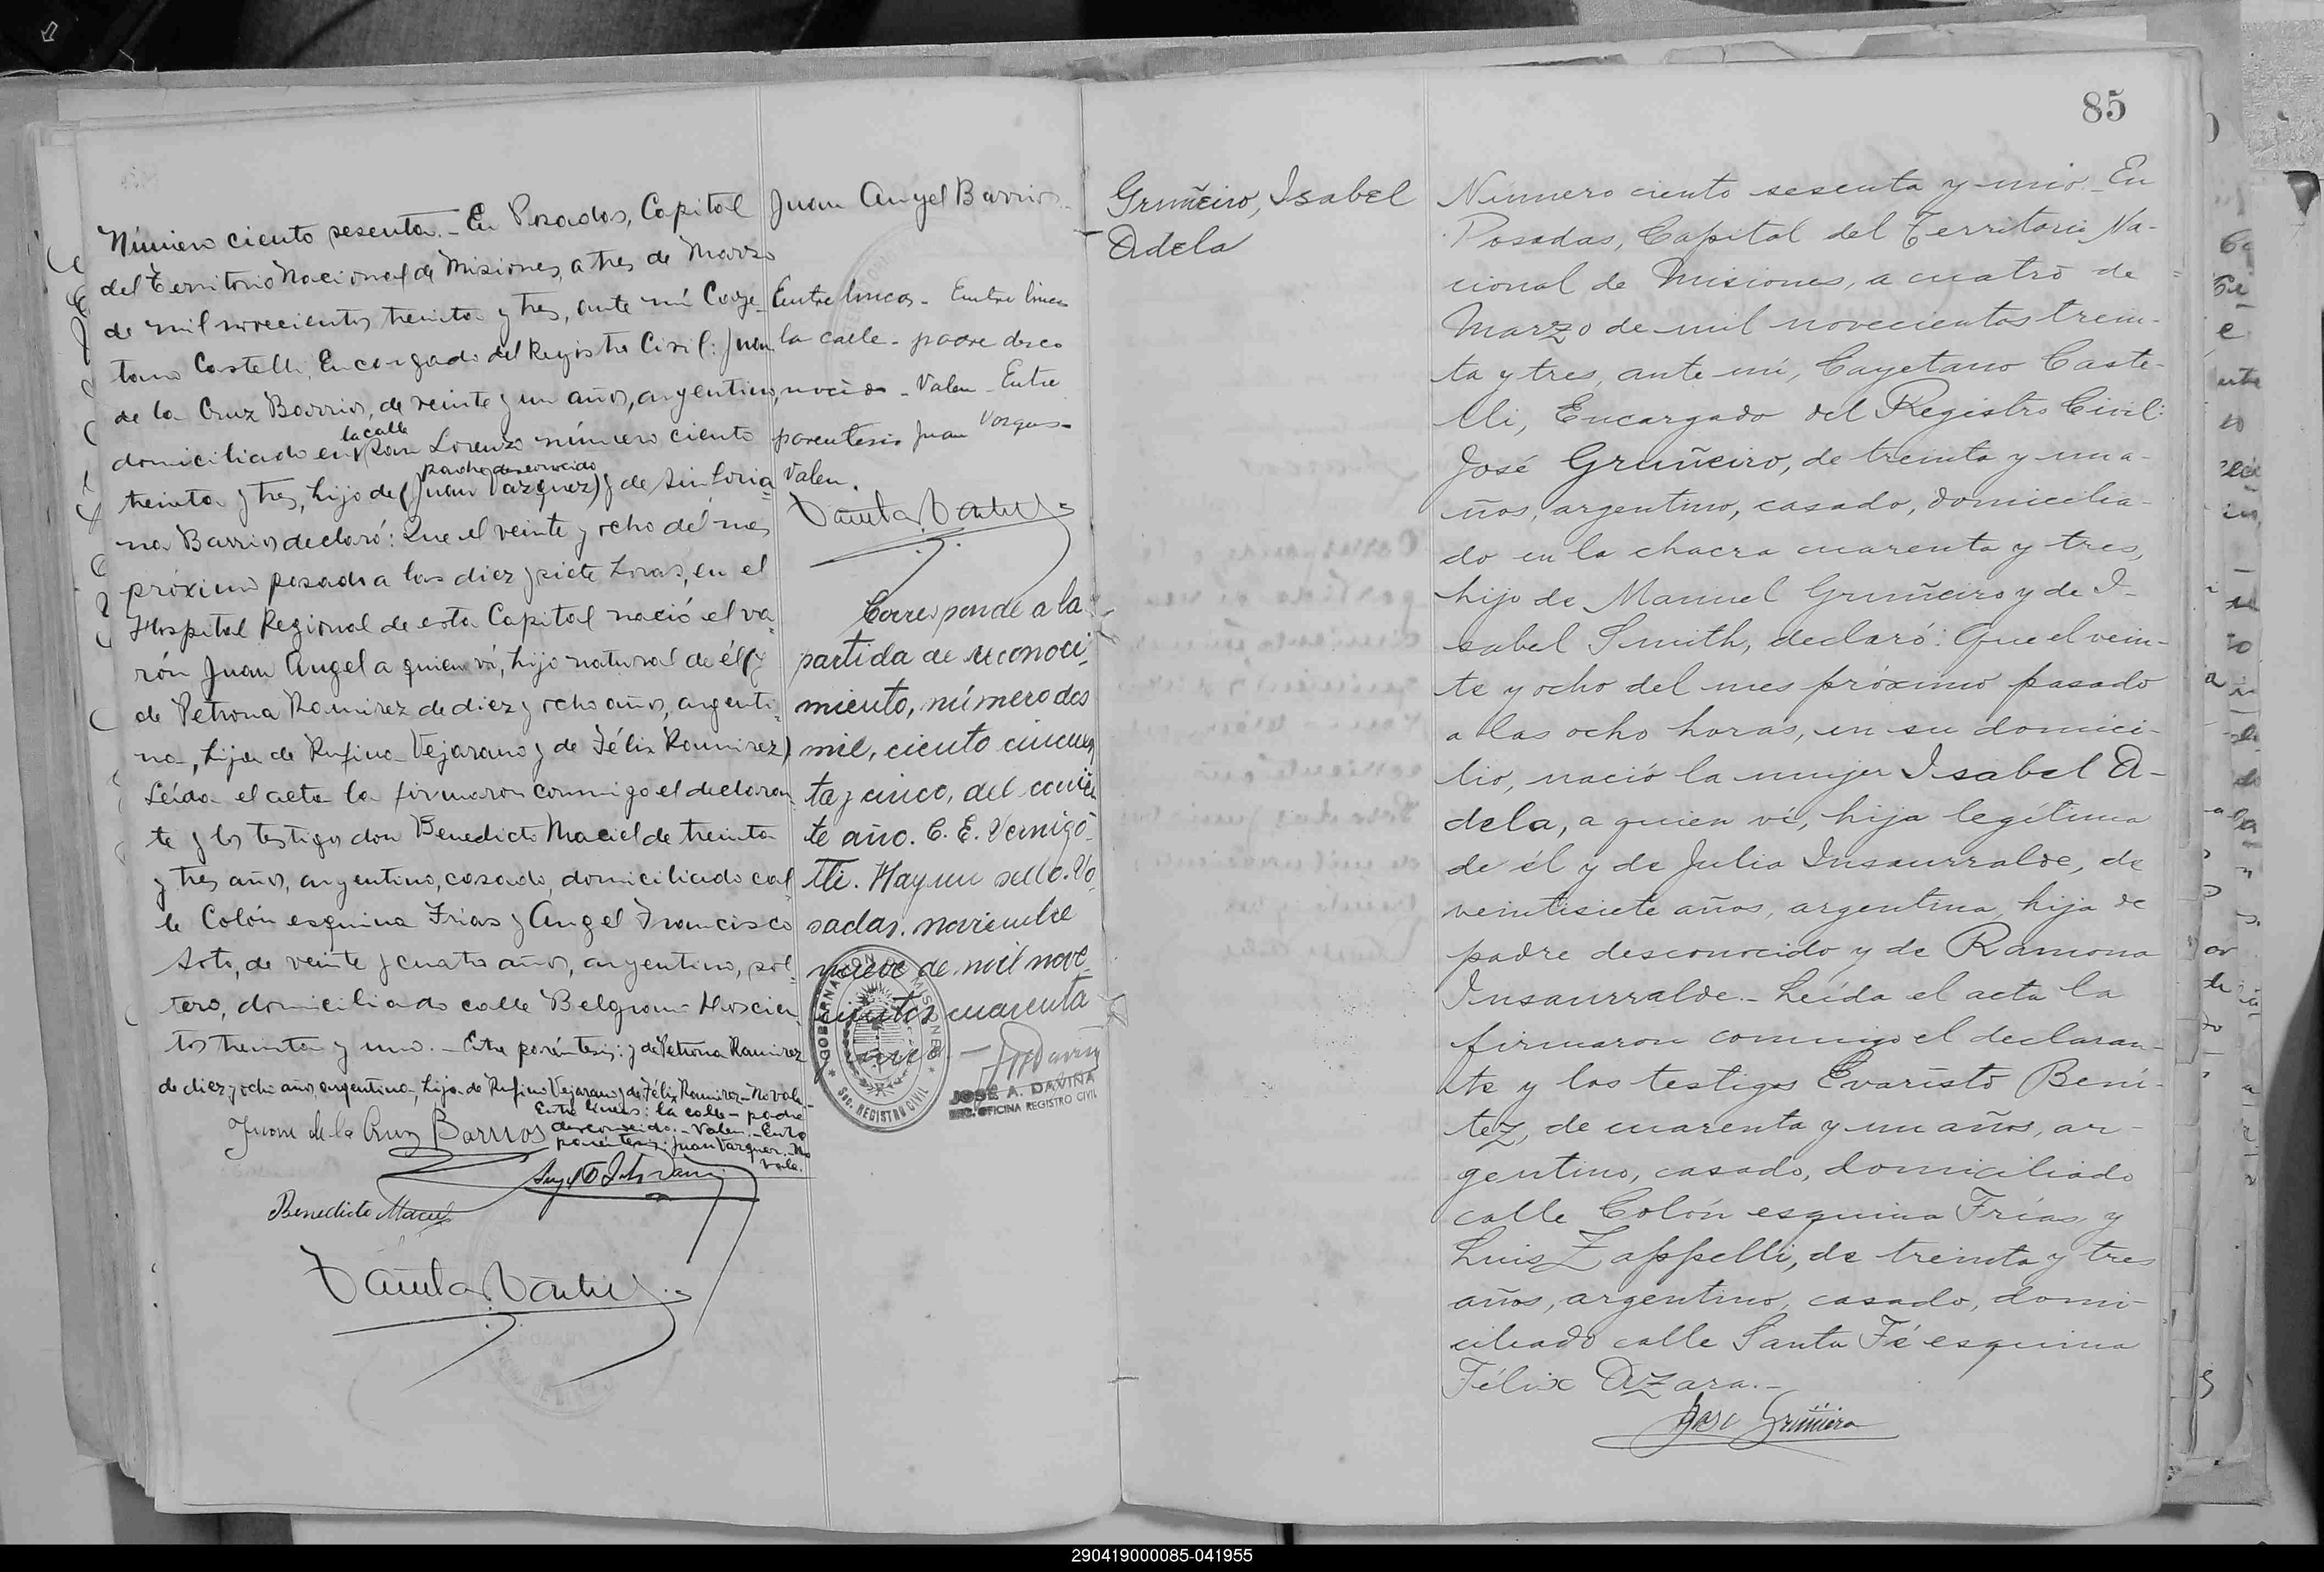 Número ciento sesenta.- En Posadas, Capital
del Territorio Nacional de Misiones, a tres de Marzo
de mil novecientos treinta y tres, ante mí Caye-
tano Castelli, Encargado del Registro Civil: Juan
de la Cruz Barrios, de veinte y un años, argentino,
la calle
domiciliado en San Lorenzo número ciento
padre desconocido
treinta y tres, hijo de (Juan Vazquez) y de Sinforia=
na Barrios declaró: Que el veinte y ocho del mes
próximo pasado a las diez y siete horas, en el
Hospital Regional de esta Capital nació el va=
rón Juan Angel a quien ví, hijo natural de él (y
de Petrona Ramirez de diez y ocho años, argenti=
na, hija de Rufino Vejarano y de Félix Ramirez)
Leída el acta la firmaron conmigo el declaran=
te y los testigos don Benedicto Maciel de treinta
y tres años, argentino, casado, domiciliado cal=
le Colón esquina Frías y Angel Francisco
Soto, de veinte y cuatro años, argentino, sol=
tero, domiciliado calle Belgrano doscien=
tos treinta y uno.- Entre paréntesis: y de Petrona Ramirez
de diez y ocho años, argentina, hija de Rufino Vejarano y de Félix Ramirez- No vale-
Entre líneas: la calle- padre
desconocido.- Valen.- Entre
paréntesis: Juan Vazquez. No
vale.
Juan de la Cruz Barrios
Benedicto Maciel
Juan Angel Barrios.
Entre lineas- Entre lineas
la calle- padre desco
nocido- Valen- Entre
parentesis Juan Vazquez-
Valen.
Corresponde a la
partida de reconoci=
miento, número dos
mil, ciento cincuen
ta y cinco, del corrien
te año. C. E. Vernigo=
tti. Hay un sello. Po=
sadas. noviembre
nueve de mil nove=
cientos cuarenta
GOBERNACION DE MISIONES
SEC. REGISTRO CIVIL
JOSE A. DAVIÑA
ENC. OFICINA REGISTRO CIVIL
85
Gruñeiro, Isabel
Adela
Número ciento sesenta y uno.- En
Posadas, Capital del Territorio Na-
cional de Misiones, a cuatro de
Marzo de mil novecientos trein-
ta y tres, ante mí, Cayetano Caste-
lli, Encargado del Registro Civil:
José Gruñeiro, de treinta y un a-
ños, argentino, casado, domicilia-
do en la chacra cuarenta y tres,
hijo de Manuel Gruñeiro y de I-
sabel Smith, declaró: Que el vein-
te y ocho del mes próximo pasado
a las ocho horas, en su domici-
lio, nació la mujer Isabel A-
dela, a quien ví, hija legítima
de él y de Julia Insaurralde, de
veintisiete años, argentina, hija de
padre desconocido y de Ramona
Insaurralde.- Leída el acta la
firmaron conmigo el declaran-
te y los testigos Evaristo Bení-
tez, de cuarenta y un años, ar-
gentino, casado, domiciliado
calle Colón esquina Frías y
Luis Zappelli, de treinta y tres
años, argentino, casado, domi-
ciliado calle Santa Fé esquina
Félix Azara.-
José Gruñeiro
290419000085-041955